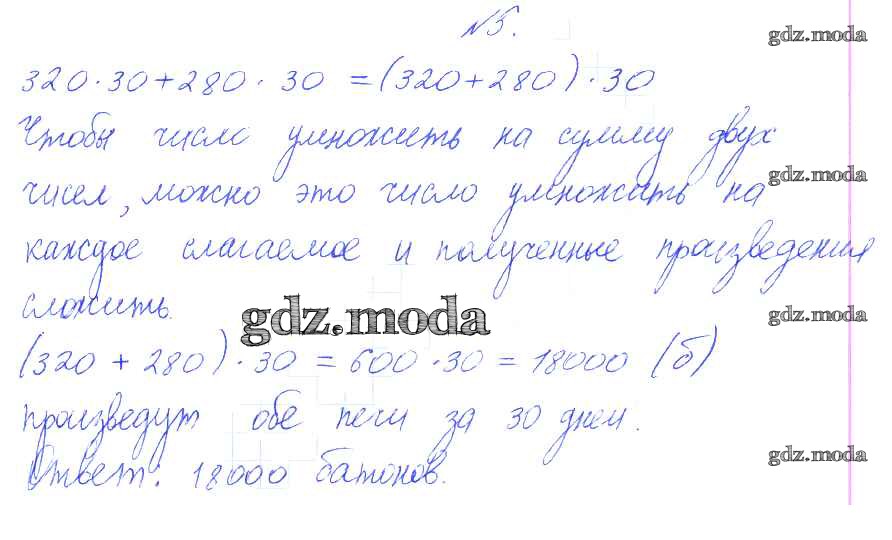 №5.
gdz.moda
320·30+280·30 =(320+280)·30
Чтобы число умножить на сумму двух
gdz.moda
чисел, можно это число умножить на
каждое слагаемое и полученные произведения
сложить.
gdz.moda
gdz.moda
(320 + 280)·30 = 600·30 = 18000 (б)
произведут обе печи за 30 дней.
gdz.moda
Ответ: 18000 батонов.